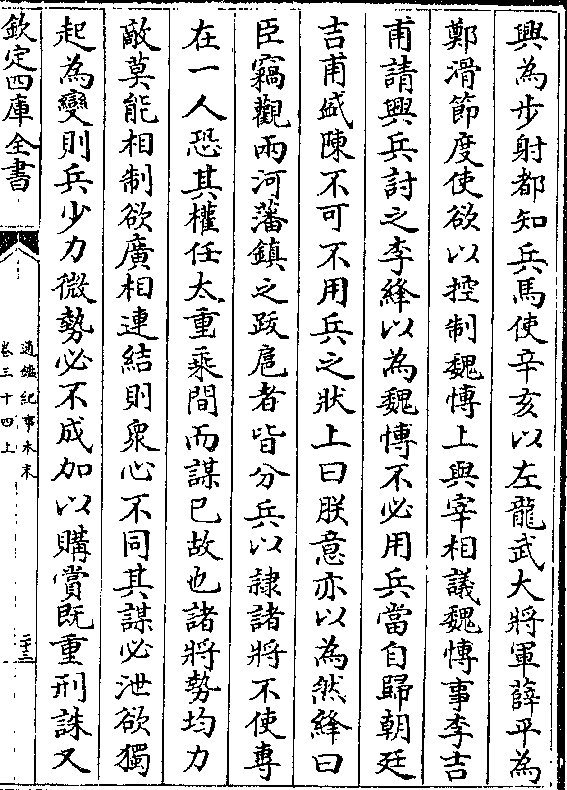 興為步射都知兵馬使辛亥以左龍武大將軍薛平為
鄭滑節度使欲以控制魏博上與宰相議魏博事李吉
甫請興兵討之李絳以為魏博不必用兵當自歸朝廷
吉甫盛陳不可不用兵之狀上曰朕意亦以為然絳曰
臣竊觀兩河藩鎮之跋扈者皆分兵以隸諸將不使專
在一人恐其權任太重乘間而謀已故也諸將勢均力
敵莫能相制欲廣相連結則衆心不同其謀必泄欲獨
起為變則兵少力微勢必不成加以購賞既重刑誅又
欽定四庫全書
通鑑紀事本末
卷三十四上
二十三